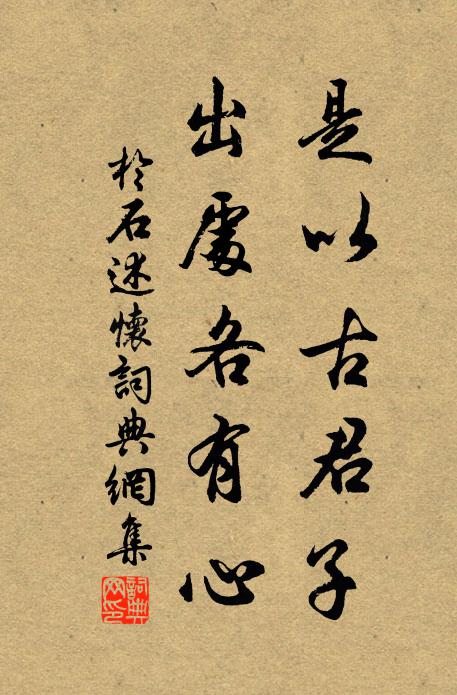 是以古君子
出處各有心
於石述懷詞典網集
詞典
網印